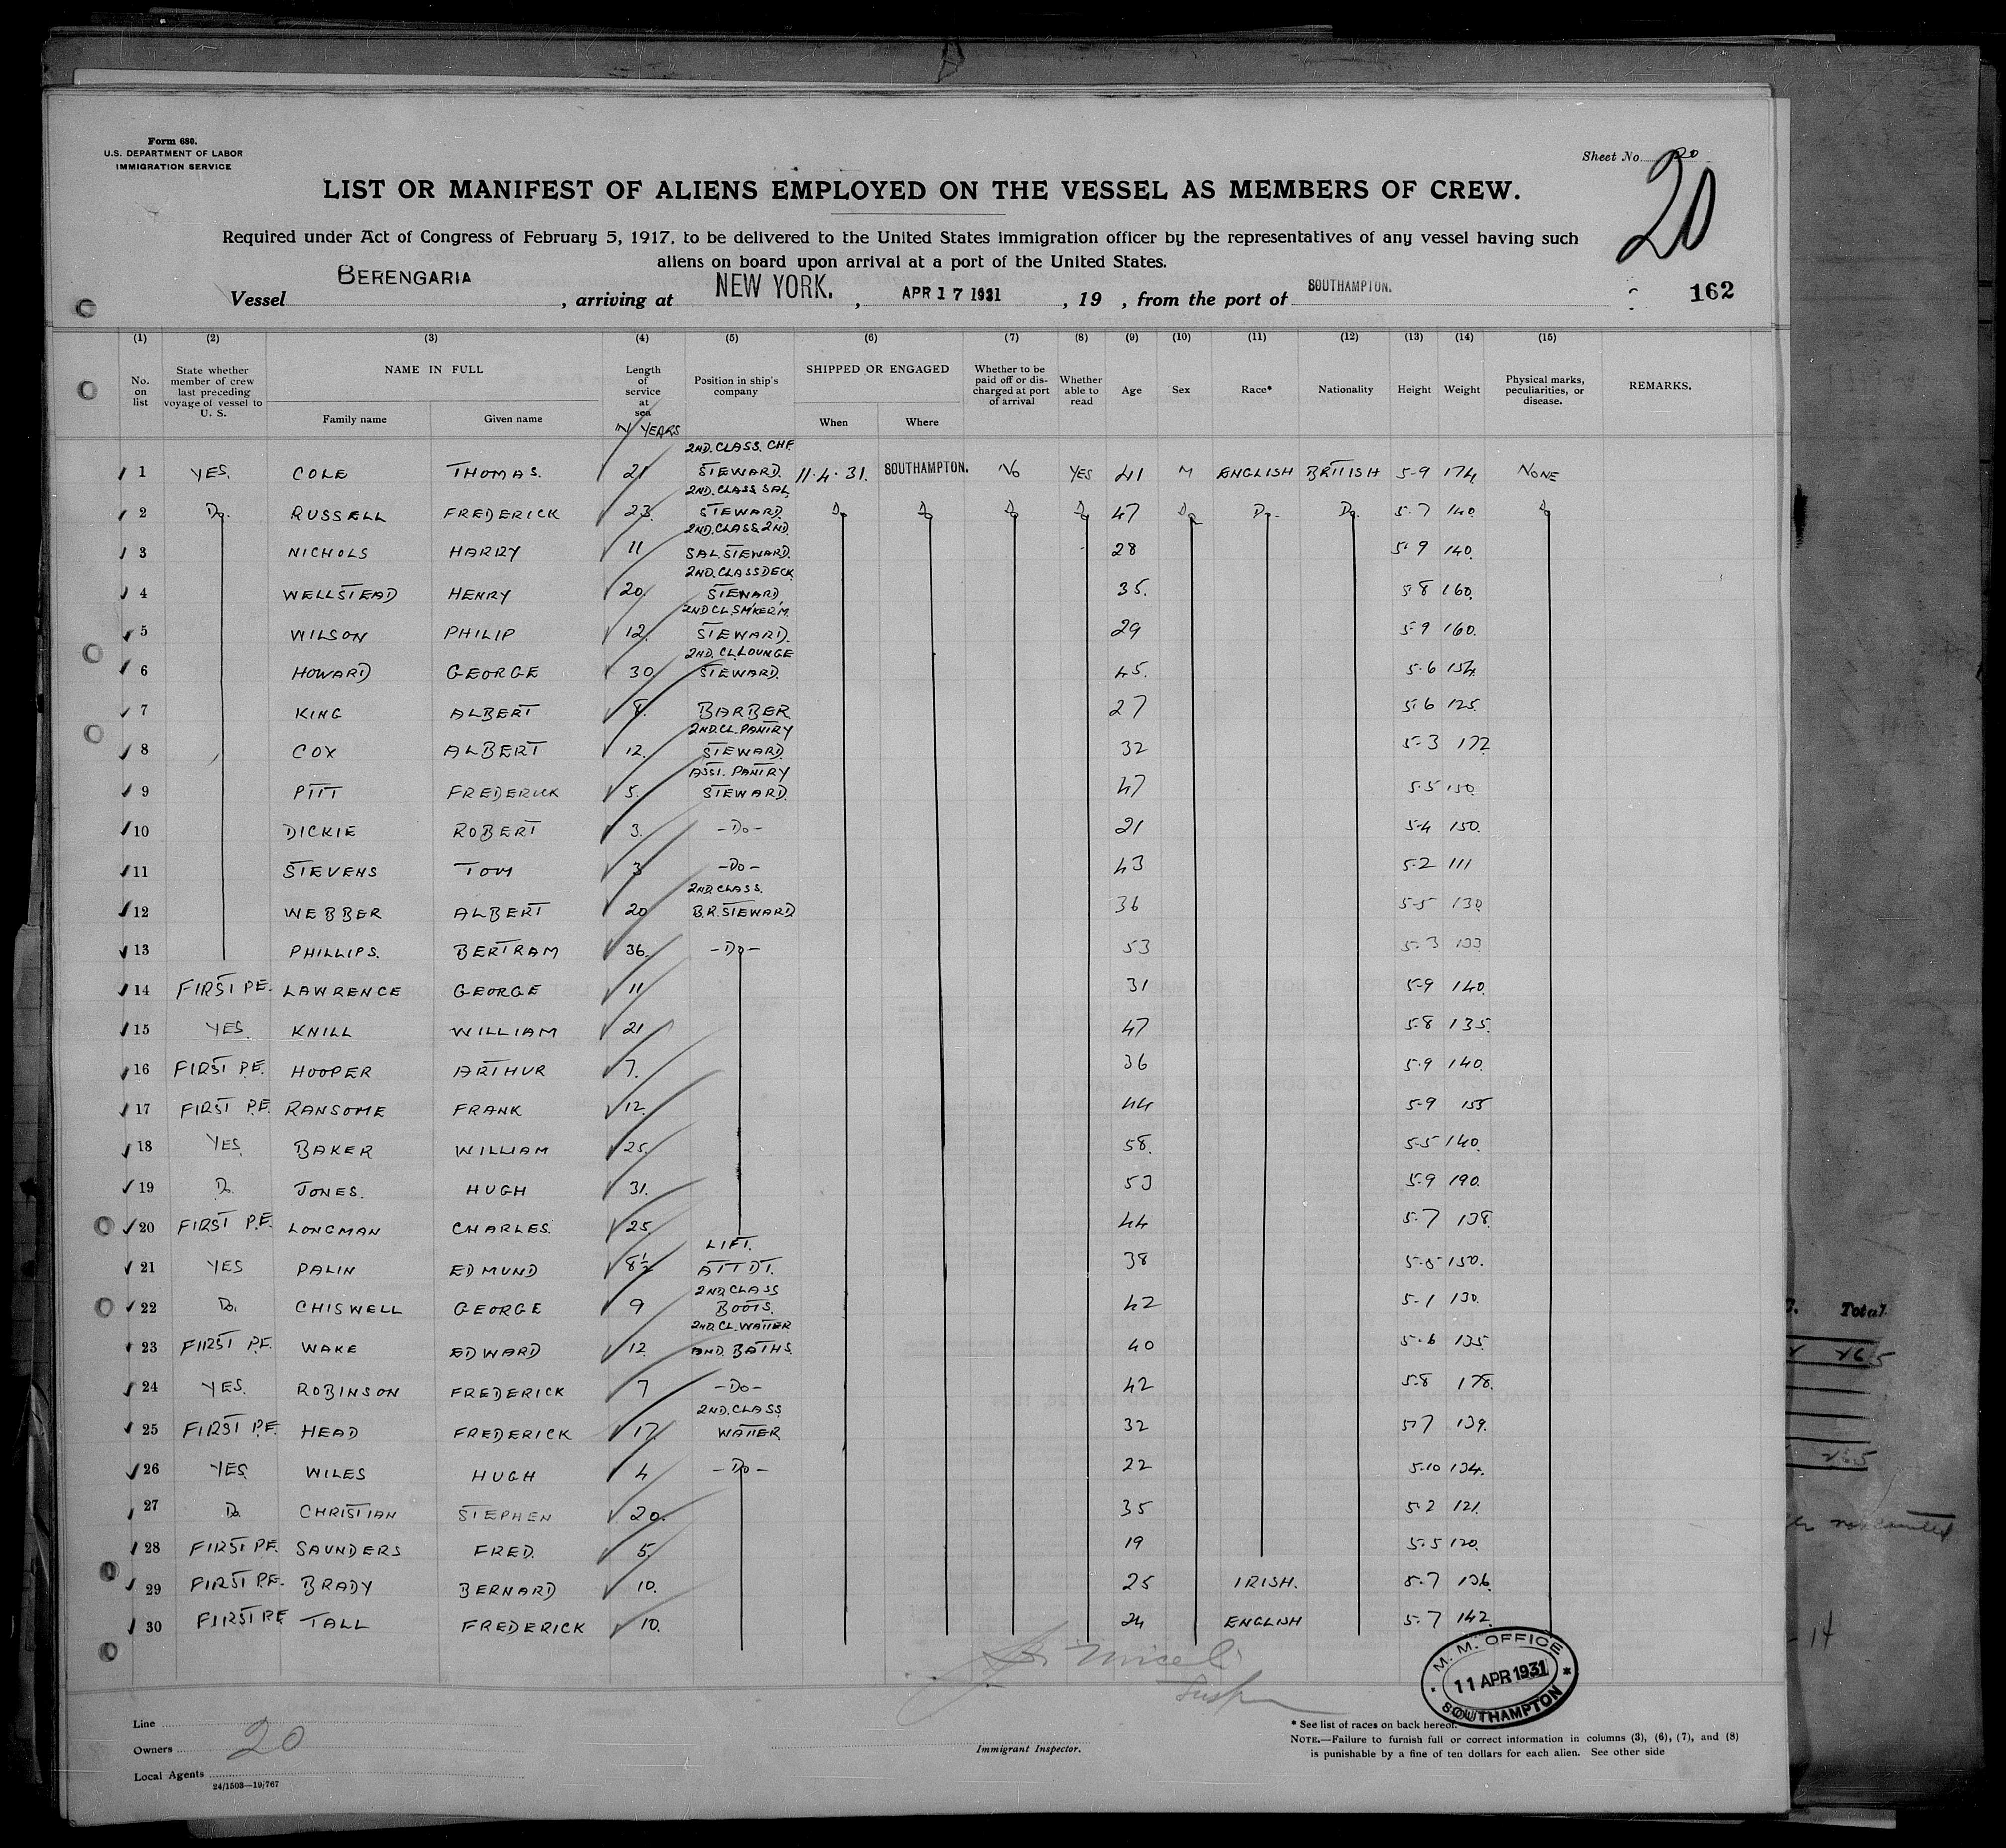 Form 680.
U.S. DEPARTMENT OF LABOR
IMMIGRATION SERVICE
Sheet No. 20
20
LIST OR MANIFEST OF ALIENS EMPLOYED ON THE VESSEL AS MEMBERS OF CREW.
Required under Act of Congress of February 5, 1917, to be delivered to the United States immigration officer by the representatives of any vessel having such
aliens on board upon arrival at a port of the United States.
Vessel BERENGARIA, arriving at NEW YORK., APR 17 1931, 19 , from the port of SOUTHAMPTON. 162
(1) (2) (3) (4) (5) (6) (7) (8) (9) (10) (11) (12) (13) (14) (15)
No. on list State whether member of crew last preceding voyage of vessel to U. S. NAME IN FULL Family name Given name Length of service at sea IN YEARS Position in ship's company SHIPPED OR ENGAGED When Where Whether to be paid off or discharged at port of arrival Whether able to read Age Sex Race* Nationality Height Weight Physical marks, peculiarities, or disease. REMARKS.
1 YES. COLE THOMAS. 21 2ND. CLASS. CHF. STEWARD. 11.4.31. SOUTHAMPTON. NO YES 41 M ENGLISH BRITISH 5-9 174 NONE
2 Do. RUSSELL FREDERICK 23. 2ND. CLASS SAL STEWARD. Do Do Do Do 47 Do Do. Do. 5.7 140. Do
3 NICHOLS HARRY 11 2ND. CLASS. 2ND. SAL STEWARD. 28 5.9 140.
4 WELLSTEAD HENRY 20. 2ND. CLASS DECK STEWARD. 35. 5.8 160.
5 WILSON PHILIP 12. 2ND CL. SMKER'M. STEWARD. 29 5.9 160.
6 HOWARD GEORGE 30 2ND. CL. LOUNGE STEWARD. 45. 5.6 154.
7 KING ALBERT 8. BARBER 27 5.6 125.
8 COX ALBERT 12. 2ND. CL. PANTRY STEWARD. 32 5-3 172
9 PITT FREDERICK 5. ASST. PANTRY STEWARD. 47 5.5 150.
10 DICKIE ROBERT 3. -Do- 21 5-4 150.
11 STEVENS TOM 3 -Do- 43 5-2 111
12 WEBBER ALBERT 20 2ND. CLASS. B.R. STEWARD 36 5-5 130
13 PHILLIPS. BERTRAM 36. -Do- 53 5.3 133
14 FIRST P.E. LAWRENCE GEORGE 11 31 5-9 140.
15 YES. KNILL WILLIAM 21 47 5.8 135.
16 FIRST P.E. HOOPER ARTHUR 7. 36 5.9 140.
17 FIRST P.E. RANSOME FRANK 12. 44 5-9 155
18 YES BAKER WILLIAM 25. 58. 5-5 140.
19 Do. JONES. HUGH 31. 53 5.9 190.
20 FIRST P.E. LONGMAN CHARLES. 25. 44 5.7 138.
21 YES PALIN EDMUND 8½ LIFT. ATTDT. 38 5-5 150.
22 Do. CHISWELL GEORGE 9 2ND CLASS BOOTS. 42 5-1 130.
23 FIRST P.E. WAKE EDWARD 12 2ND. CL. WAITER AND. BATHS. 40 5.6 135.
24 YES. ROBINSON FREDERICK 7 -Do- 42 5.8 178.
25 FIRST P.E. HEAD FREDERICK 17. 2ND. CLASS WAITER 32 5.7 139.
26 YES WILES HUGH 4 -Do- 22 5.10 134.
27 Do. CHRISTIAN STEPHEN 20. 35 5.2 121.
28 FIRST P.E. SAUNDERS FRED. 5. 19 5.5 120.
29 FIRST P.E. BRADY BERNARD 10. 25 IRISH. 5.7 136.
30 FIRST P.E TALL FREDERICK 10. 24 ENGLISH 5.7 142.
M. M. OFFICE
11 APR 1931
SOUTHAMPTON
Line
Owners 20
Local Agents
24/1503—19/767
Immigrant Inspector.
* See list of races on back hereof.
NOTE.—Failure to furnish full or correct information in columns (3), (6), (7), and (8)
is punishable by a fine of ten dollars for each alien. See other side
Total
265
265
14